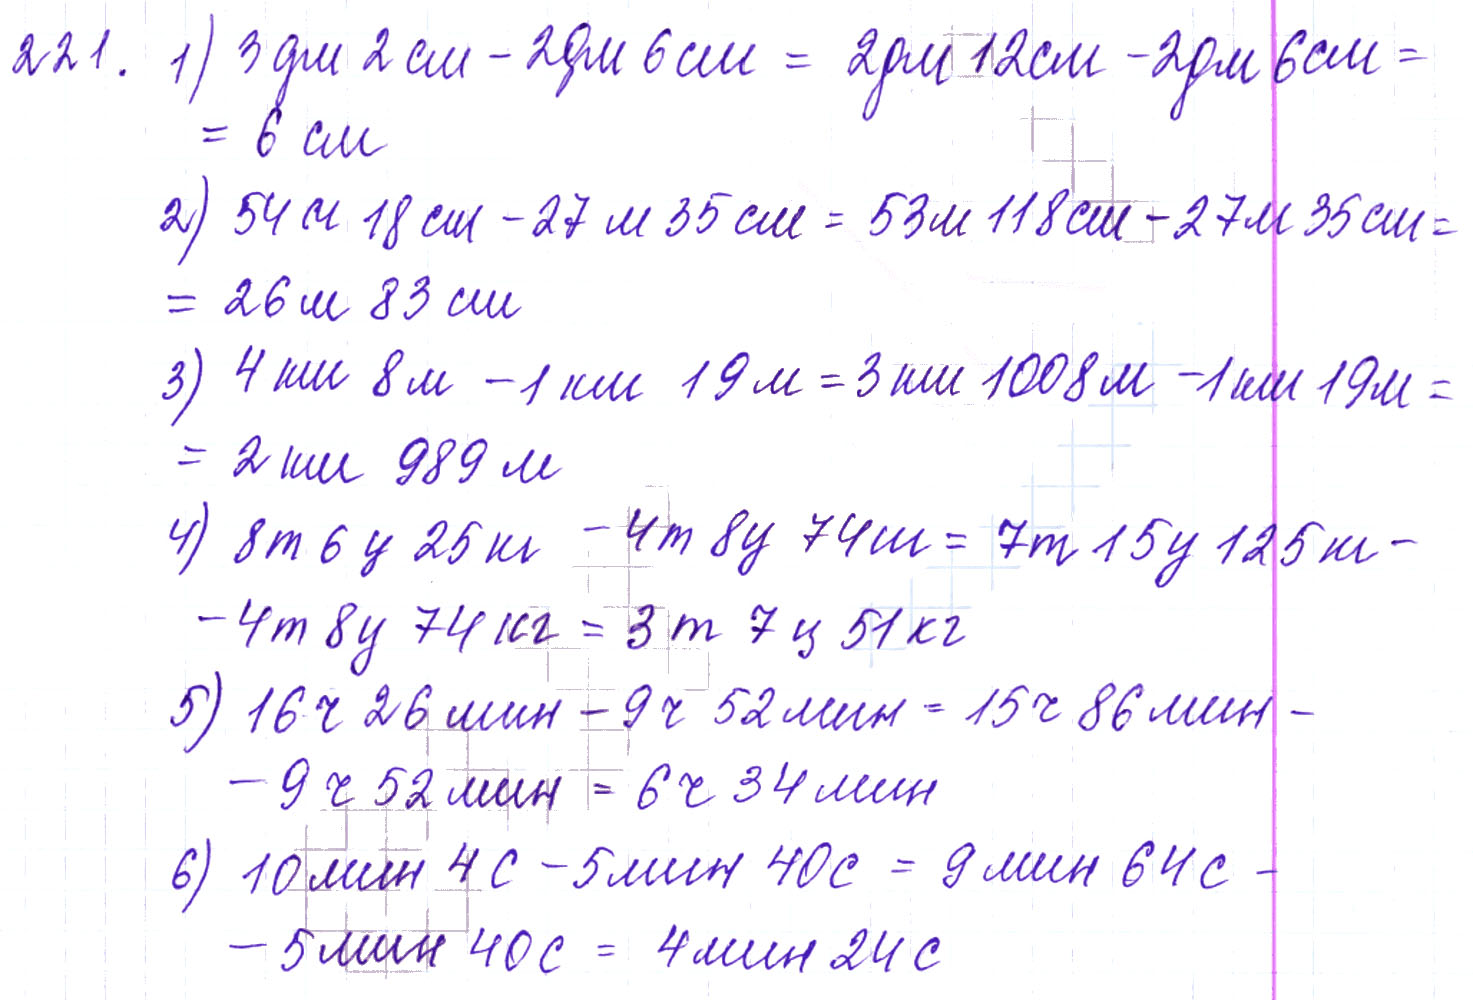 221. 1) 3 дм 2 см - 2дм 6 см = 2дм 12см - 2дм 6см =
= 6 см
2) 54 м 18 см - 27 м 35 см = 53м 118см - 27м 35 см =
= 26 м 83 см
3) 4 км 8 м - 1 км 19 м = 3 км 1008 м - 1 км 19м =
= 2 км 989 м
4) 8т 6 ц 25 кг - 4т 8ц 74кг = 7т 15ц 125 кг -
- 4т 8ц 74 кг = 3 т 7 ц 51 кг
5) 16 ч 26 мин - 9 ч 52 мин = 15ч 86 мин -
- 9 ч 52 мин = 6 ч 34 мин
6) 10 мин 4 с - 5 мин 40с = 9 мин 64 с -
- 5 мин 40 с = 4 мин 24 с